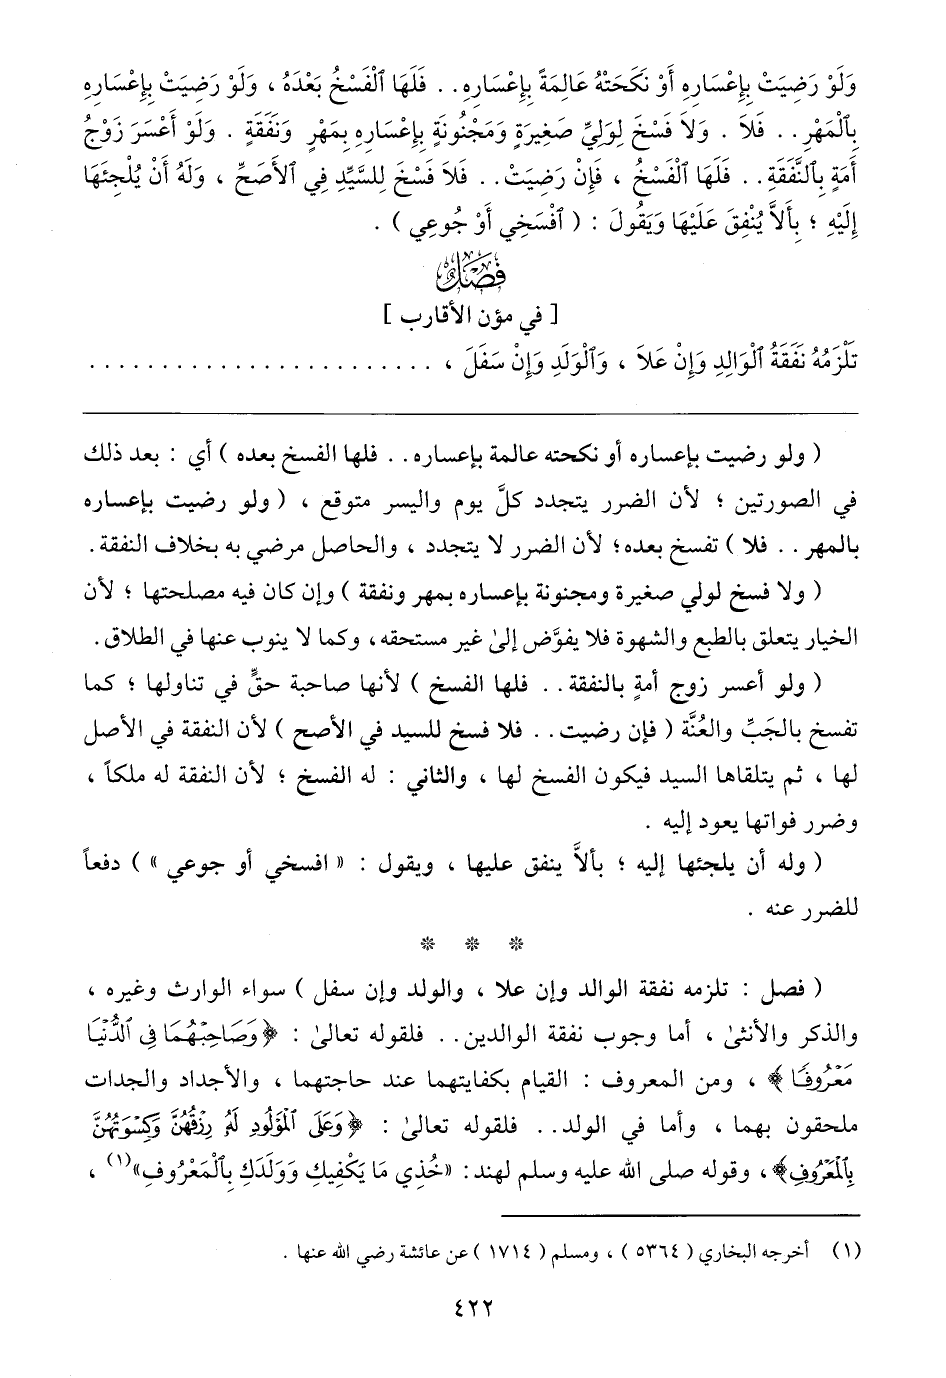 وَلَوْ رَضِيَتْ بِإِعْسَارِهِ أَوْ نَكَحَتْهُ عَالِمَةً بِإِعْسَارِهِ.. فَلَهَا ٱلْفَسْخُ بَعْدَهُ ، وَلَوْ رَضِيَتْ بِإِعْسَارِهِ
بِٱلْمَهْرِ.. فَلاَ . وَلاَ فَسْخَ لِوَلِيِّ صَغِيرَةٍ وَمَجْنُونَةٍ بِإِعْسَارِهِ بِمَهْرٍ وَنَفَقَةٍ . وَلَوْ أَعْسَرَ زَوْجُ
أَمَةٍ بِٱلنَّفَقَةِ.. فَلَهَا ٱلْفَسْخُ ، فَإِنْ رَضِيَتْ.. فَلاَ فَسْخَ لِلسَّيِّدِ فِي ٱلأَصَحِّ ، وَلَهُ أَنْ يُلْجِئَهَا
إِلَيْهِ ؛ بِأَلاَّ يُنْفِقَ عَلَيْهَا وَيَقُولَ : ( ٱفْسَخِي أَوْ جُوعِي ) .
فَصْلٌ
[ في مؤن الأقارب ]
تَلْزَمُهُ نَفَقَةُ ٱلْوَالِدِ وَإِنْ عَلاَ ، وَٱلْوَلَدِ وَإِنْ سَفَلَ ، . . . . . . . . . . . . . . . . . . . . . . . .
( ولو رضيت بإعساره أو نكحته عالمة بإعساره.. فلها الفسخ بعده ) أي : بعد ذلك
في الصورتين ؛ لأن الضرر يتجدد كلَّ يوم واليسر متوقع ، ( ولو رضيت بإعساره
بالمهر.. فلا ) تفسخ بعده؛ لأن الضرر لا يتجدد ، والحاصل مرضي به بخلاف النفقة.
( ولا فسخ لولي صغيرة ومجنونة بإعساره بمهر ونفقة ) وإن كان فيه مصلحتها ؛ لأن
الخيار يتعلق بالطبع والشهوة فلا يفوَّض إلىٰ غير مستحقه، وكما لا ينوب عنها في الطلاق.
( ولو أعسر زوج أمةٍ بالنفقة.. فلها الفسخ ) لأنها صاحبة حقٍّ في تناولها ؛ كما
تفسخ بالجَبِّ والعُنَّة ( فإن رضيت.. فلا فسخ للسيد في الأصح ) لأن النفقة في الأصل
لها ، ثم يتلقاها السيد فيكون الفسخ لها ، والثاني : له الفسخ ؛ لأن النفقة له ملكاً ،
وضرر فواتها يعود إليه .
( وله أن يلجئها إليه ؛ بألاَّ ينفق عليها ، ويقول : « افسخي أو جوعي » ) دفعاً
للضرر عنه .
* * *
( فصل : تلزمه نفقة الوالد وإن علا ، والولد وإن سفل ) سواء الوارث وغيره ،
والذكر والأنثىٰ ، أما وجوب نفقة الوالدين.. فلقوله تعالىٰ : ﴿وَصَاحِبْهُمَا فِي ٱلدُّنْيَا
مَعْرُوفًا﴾ ، ومن المعروف : القيام بكفايتهما عند حاجتهما ، والأجداد والجدات
ملحقون بهما ، وأما في الولد.. فلقوله تعالىٰ : ﴿وَعَلَى ٱلْمَوْلُودِ لَهُۥ رِزْقُهُنَّ وَكِسْوَتُهُنَّ
بِٱلْمَعْرُوفِ﴾، وقوله صلى الله عليه وسلم لهند: «خُذِي مَا يَكْفِيكِ وَوَلَدَكِ بِٱلْمَعْرُوفِ»(١) ،
(١) أخرجه البخاري ( ٥٣٦٤ ) ، ومسلم ( ١٧١٤ ) عن عائشة رضي الله عنها .
٤٢٢